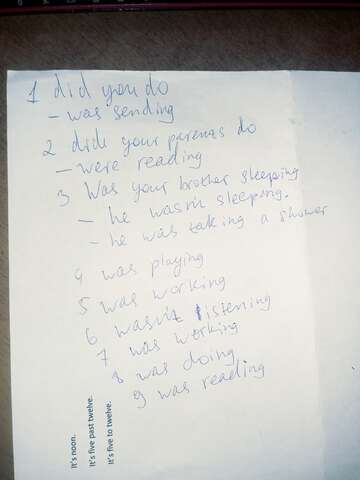 1 did you do
- was sending
2 did your parenas do
- were reading
3 Was your brother sleeping
- he wasn't sleeping.
- he was taking a shower
4 was playing
5 was working
6 wasn't listening
7 was working
8 was doing
9 was reading
It's noon.
It's five past twelve.
It's five to twelve.